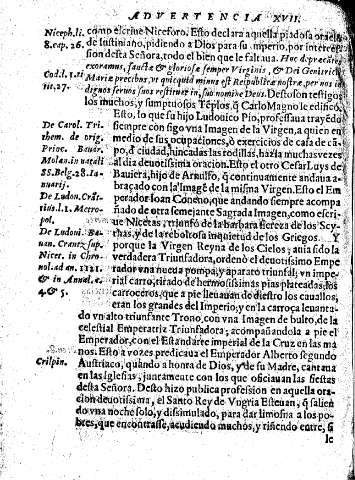 ADVERTENCIA XVII.
Niceph. li. 8. cap. 26.
Cod. l. 1. ti tit. 27.
De Carol. Tri-
them. de orig.
Princ. Bauar.
Molan. in natali
SS. Belg. 28. Ia-
nuarij.
De Ludon. Crāt-
zius. l. 1. Metro-
pol.
De Ludoui. Ba-
uar. Crantz. sup.
Nicet. in Chro-
nol. ad an. 1121.
& in Annal. c.
4. & 5.
Crispin.
como escriue Niceforo. Esto declara aquella piadosa oraciō
de Iustiniano, pidiendo a Dios para su imperio, por interces
sion desta Señora, todo el bien que le faltaua. Hoc deprecātes
exoramus, sanctæ & gloriosæ semper Virginis, & Dei Genitricis
Mariæ precibus, vt quicquid minus est Reipublicæ nostræ, per nos in
dignos seruos suos restituet in suo nomine Deus. Desto son testigos
los muchos, y sumptuosos Tēplos, q̄ Carlo Magno le edificó.
Esto, lo que su hijo Ludouico Pio, professaua trayēdo
siempre con sigo vna Imagen de la Virgen, a quien en
medio de sus ocupaciones, ò exercicios de casa de cā-
po, ò ciudad, hincadas las rodillas, hazia muchas vezes
al dia deuotissima oracion. Esto el otro Cesar Luys de
Bauiera, hijo de Arnulfo, q̄ continuamente andaua a-
braçado con la Imagē de la misma Virgen. Esto el Em
perador Ioan Coneno, que andando siempre acompa
ñado de otra semejante Sagrada Imagen, como escri-
ue Nicetas, triunfò de la barbara fiereza de los Scy-
thas, y de la reboltosa inquietud de los Griegos. Y
porque la Virgen Reyna de los Cielos; auia sido la
verdadera Triunfadora, ordenò el deuotissimo Empe
rador vna nueua pompa, y aparato triunfal; vn impe-
rial carro, tirado de hermosissimas pias plateadas, los
carroceros, que a pie lleuauan de diestro los cauallos,
eran los grandes del Imperio, y en la carroça leuanta-
do vn alto triunfante Trono, con vna Imagen de bulto, de la
celestial Emperatriz Triunfadora; acompañandola a pie el
Emperador, con el Estandarte imperial de la Cruz en las ma
nos. Esto a vozes predicaua el Emperador Alberto segundo
Austriaco, quando a honra de Dios, y de su Madre, cantaua
en las Iglesias, juntamente con los que oficiauan las fiestas
desta Señora. Desto hizo publica profession en aquella ora-
cion deuotissima, el Santo Rey de Vngria Esteuan, q̄ salien
do vna noche solo, y dissimulado, para dar limosna a los po-
bres, que encontrasse, acudiendo muchos, y riñendo entre, si
le